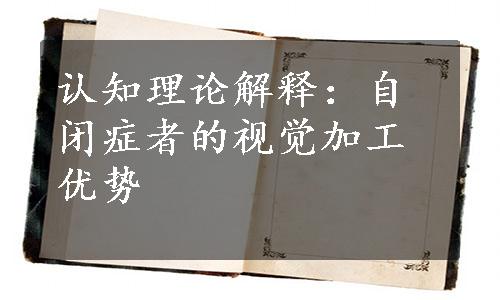 认知理论解释：自
闭症者的视觉加工
优势